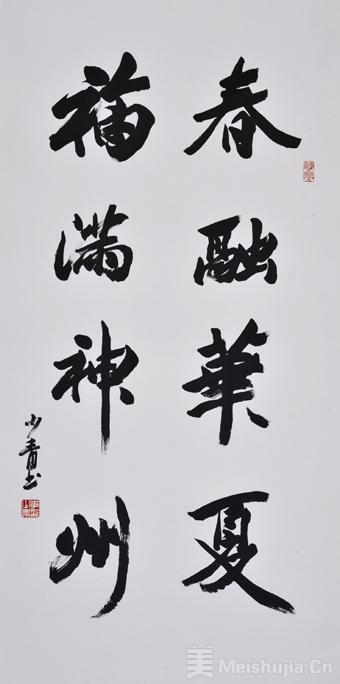 春融華夏
福满神州
少青书
美 Meishujia.Cn